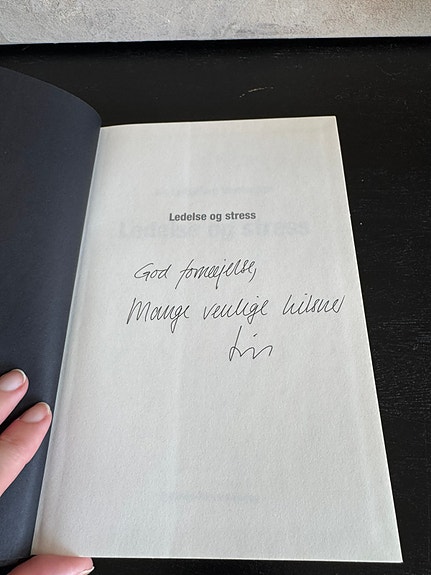 Ledelse og stress
God fornøjelse,
Mange venlige hilsner